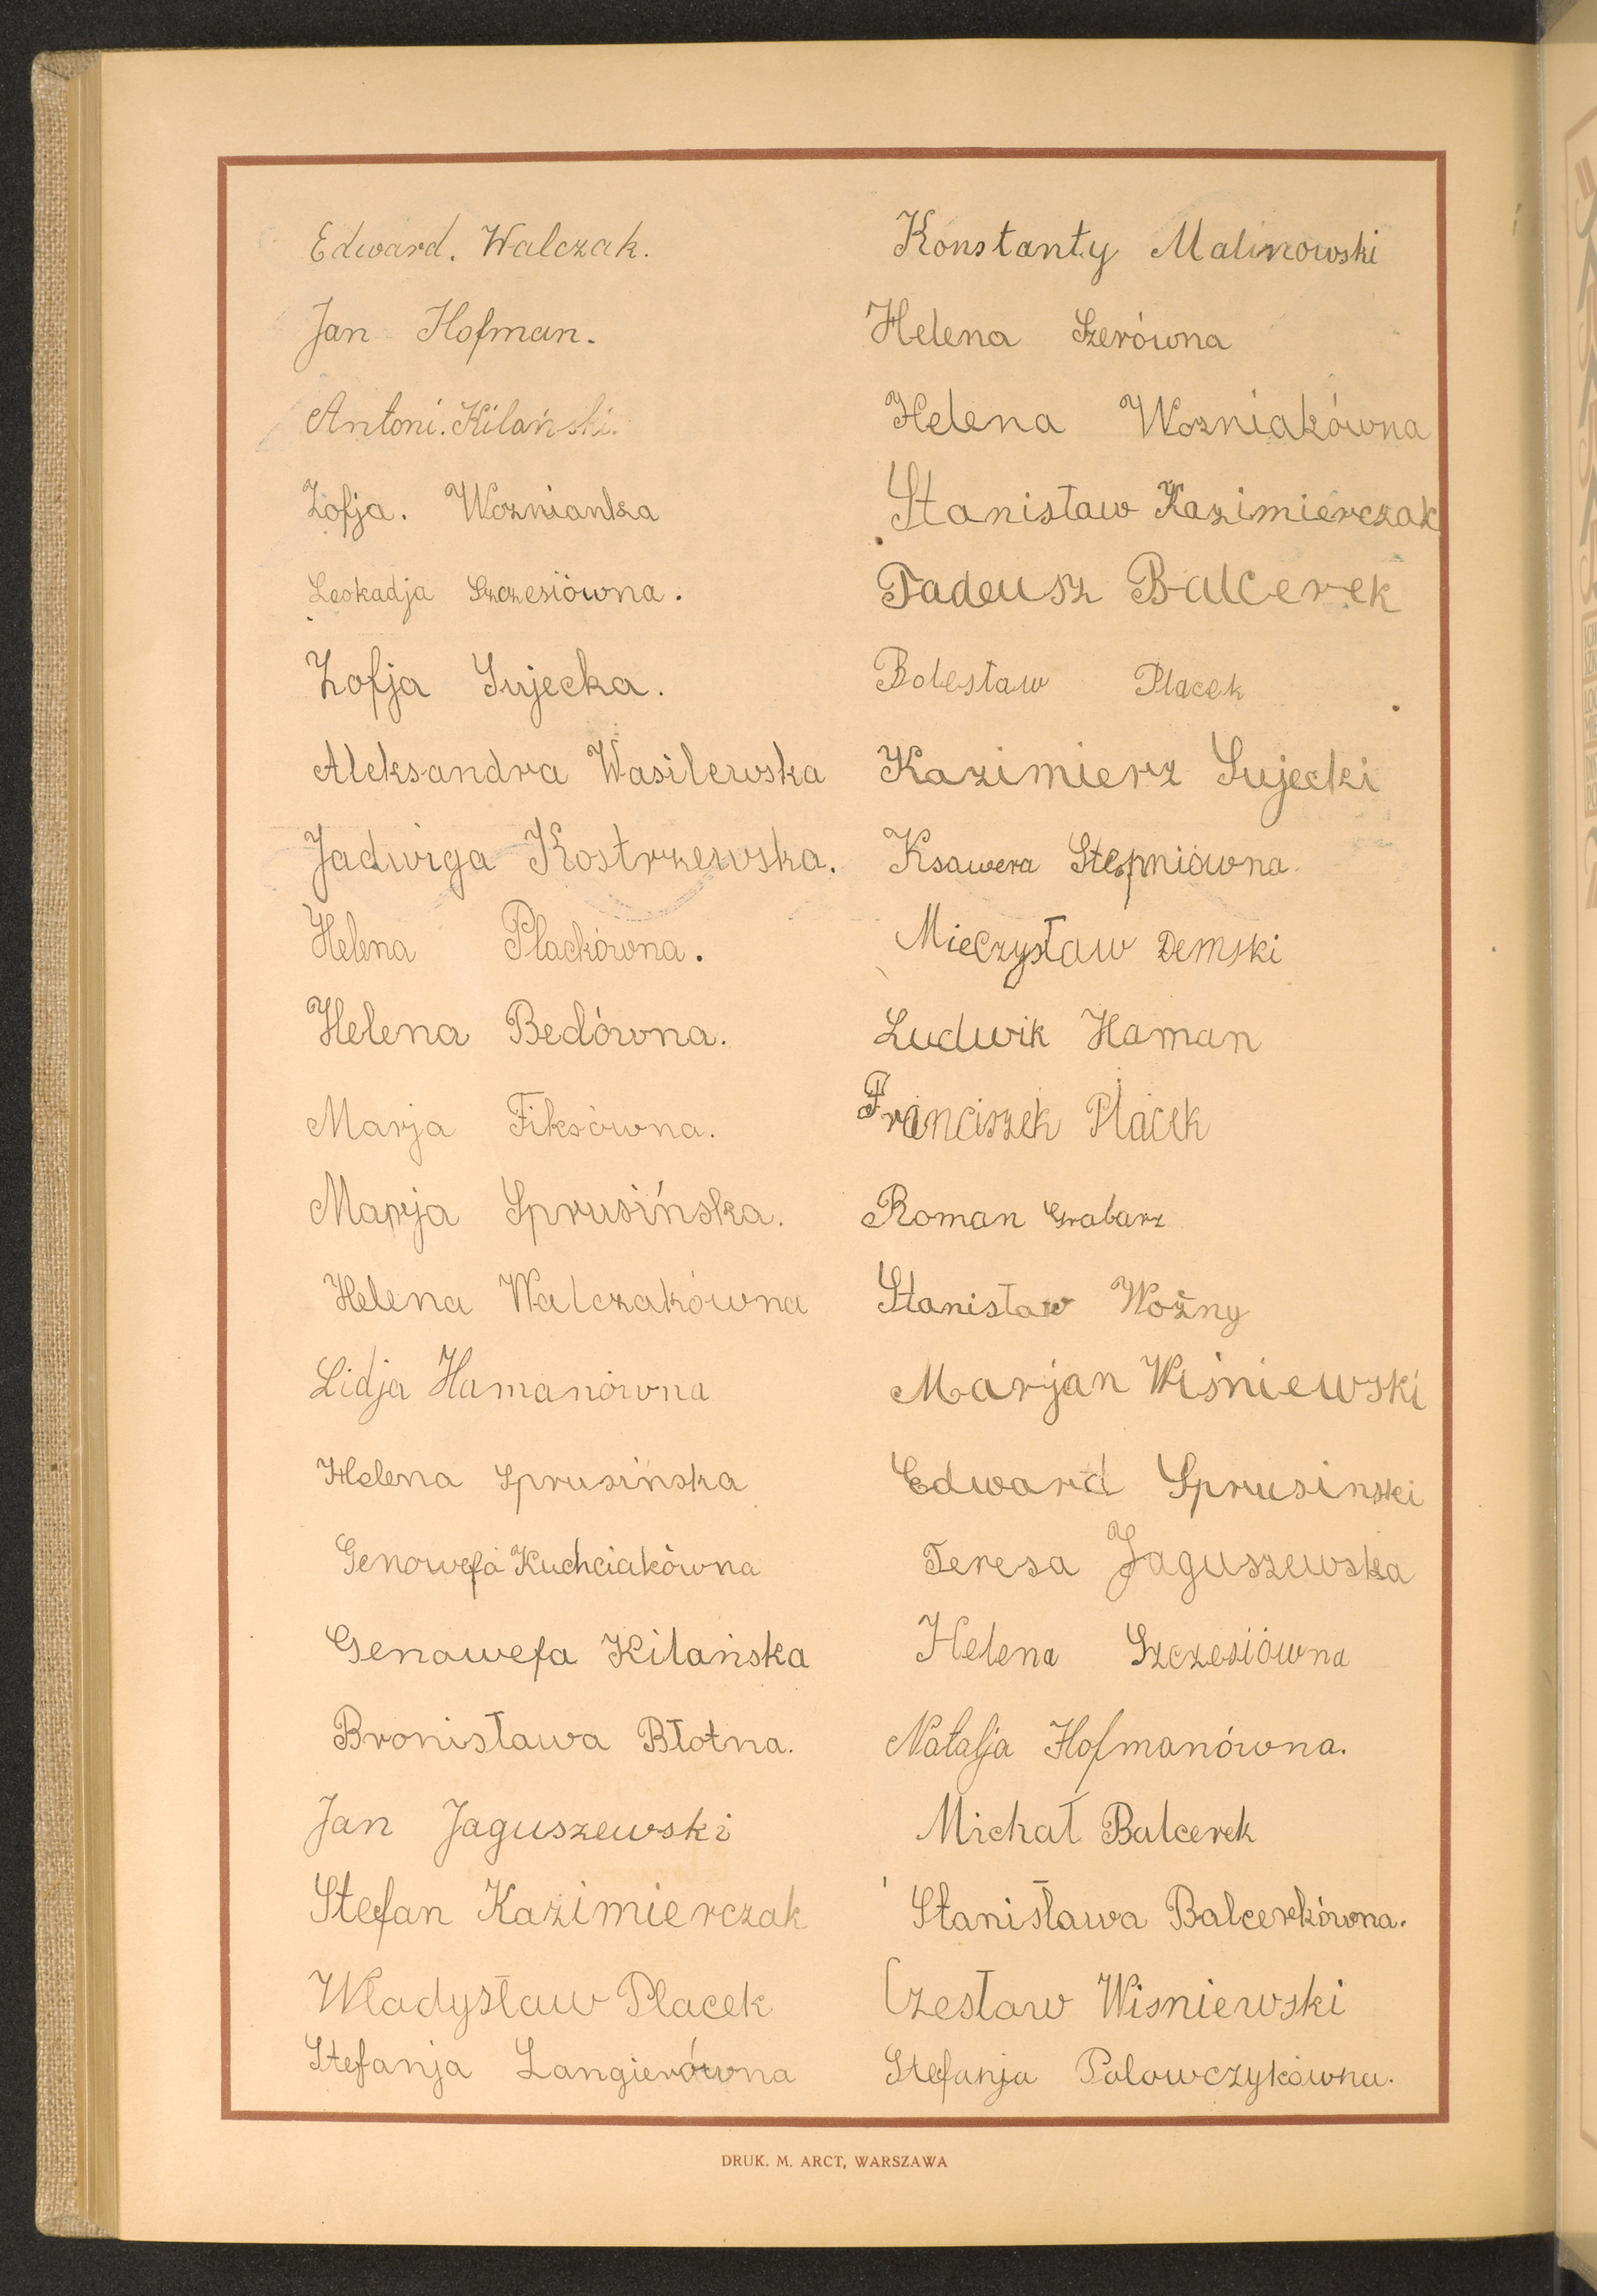 Edward. Walczak.
Jan Hofman.
Antoni. Kilański.
Zofja. Woznianka
Leokadja Szczesiówna.
Zofja Sujecka.
Aleksandra Wasilewska
Jadwiga Kostrzewska.
Helena Plackówna.
Helena Bedówna.
Marja Fiksówna.
Marja Sprusińska.
Helena Walczakówna
Lidja Hamanówna
Helena Sprusińska
Genowefa Kuchciakówna
Genowefa Kilańska
Bronisława Błotna.
Jan Jaguszewski
Stefan Kazimierczak
Władysław Placek
Stefanja Langierówna
Konstanty Malinowski
Helena Szerówna
Helena Wozniakówna
Stanisław Kazimierczak
Tadeusz Balcerek
Bolesław Placek
Kazimierz Sujecki
Ksawera Stepniówna.
Mieczysław Demski
Ludwik Haman
Franciszek Placek
Roman Grabarz
Stanisław Woźny
Marjan Wiśniewski
Edward Sprusinski
Teresa Jaguszewska
Helena Szczesiówna
Natalja Hofmanówna.
Michał Balcerek
Stanisława Balcerkówna.
Czesław Wisniewski
Stefanja Polowczykówna.
DRUK. M. ARCT, WARSZAWA